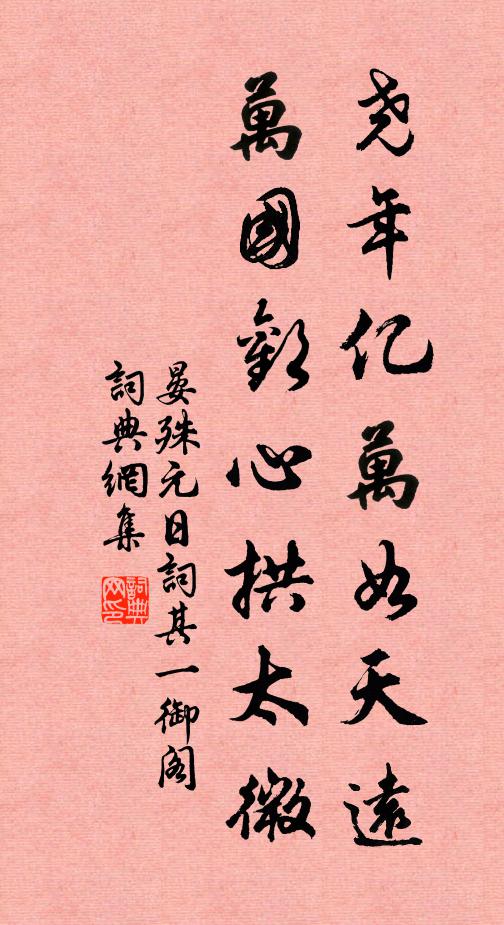 尧年亿萬如天遠
萬國歡心拱太微
晏殊元日詞其一御阁
詞典網集
詞典网印